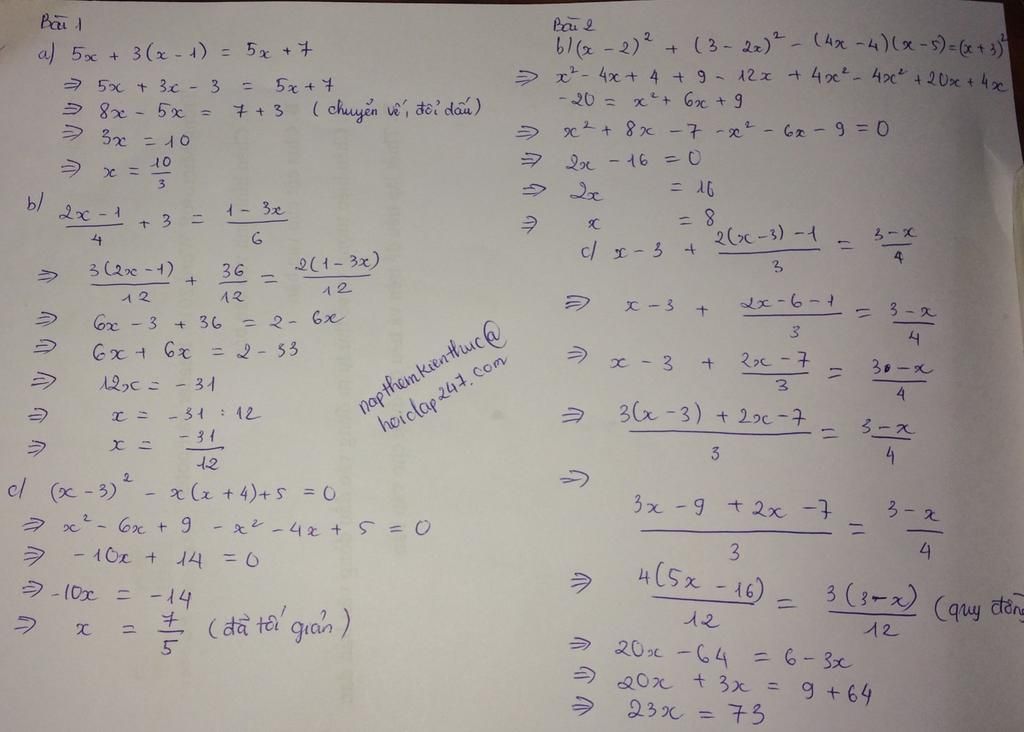 Bài 1
a) 5x + 3(x-1) = 5x + 7
⇒ 5x + 3x - 3 = 5x + 7
⇒ 8x - 5x = 7 + 3 (chuyển vế, đổi dấu)
⇒ 3x = 10
⇒ x = 10/3
b) (2x-1)/4 + 3 = (1-3x)/6
⇒ 3(2x-1)/12 + 36/12 = 2(1-3x)/12
⇒ 6x - 3 + 36 = 2 - 6x
⇒ 6x + 6x = 2 - 33
⇒ 12x = -31
⇒ x = -31 : 12
⇒ x = -31/12
c) (x-3)² - x(x+4) + 5 = 0
⇒ x² - 6x + 9 - x² - 4x + 5 = 0
⇒ -10x + 14 = 0
⇒ -10x = -14
⇒ x = 7/5 (đã tối giản)
napthemkienthuc@
hoidap247.com
Bài 2
b) (x-2)² + (3-2x)² - (4x-4)(x-5) = (x+3)²
⇒ x² - 4x + 4 + 9 - 12x + 4x² - 4x² + 20x + 4x
-20 = x² + 6x + 9
⇒ x² + 8x - 7 - x² - 6x - 9 = 0
⇒ 2x - 16 = 0
⇒ 2x = 16
⇒ x = 8
c) x - 3 + (2(x-3)-1)/3 = (3-x)/4
⇒ x - 3 + (2x-6-1)/3 = (3-x)/4
⇒ x - 3 + (2x-7)/3 = (3-x)/4
⇒ (3(x-3) + 2x-7)/3 = (3-x)/4
⇒ (3x - 9 + 2x - 7)/3 = (3-x)/4
⇒ 4(5x-16)/12 = 3(3-x)/12 (quy đồng
⇒ 20x - 64 = 6 - 3x
⇒ 20x + 3x = 9 + 64
⇒ 23x = 73